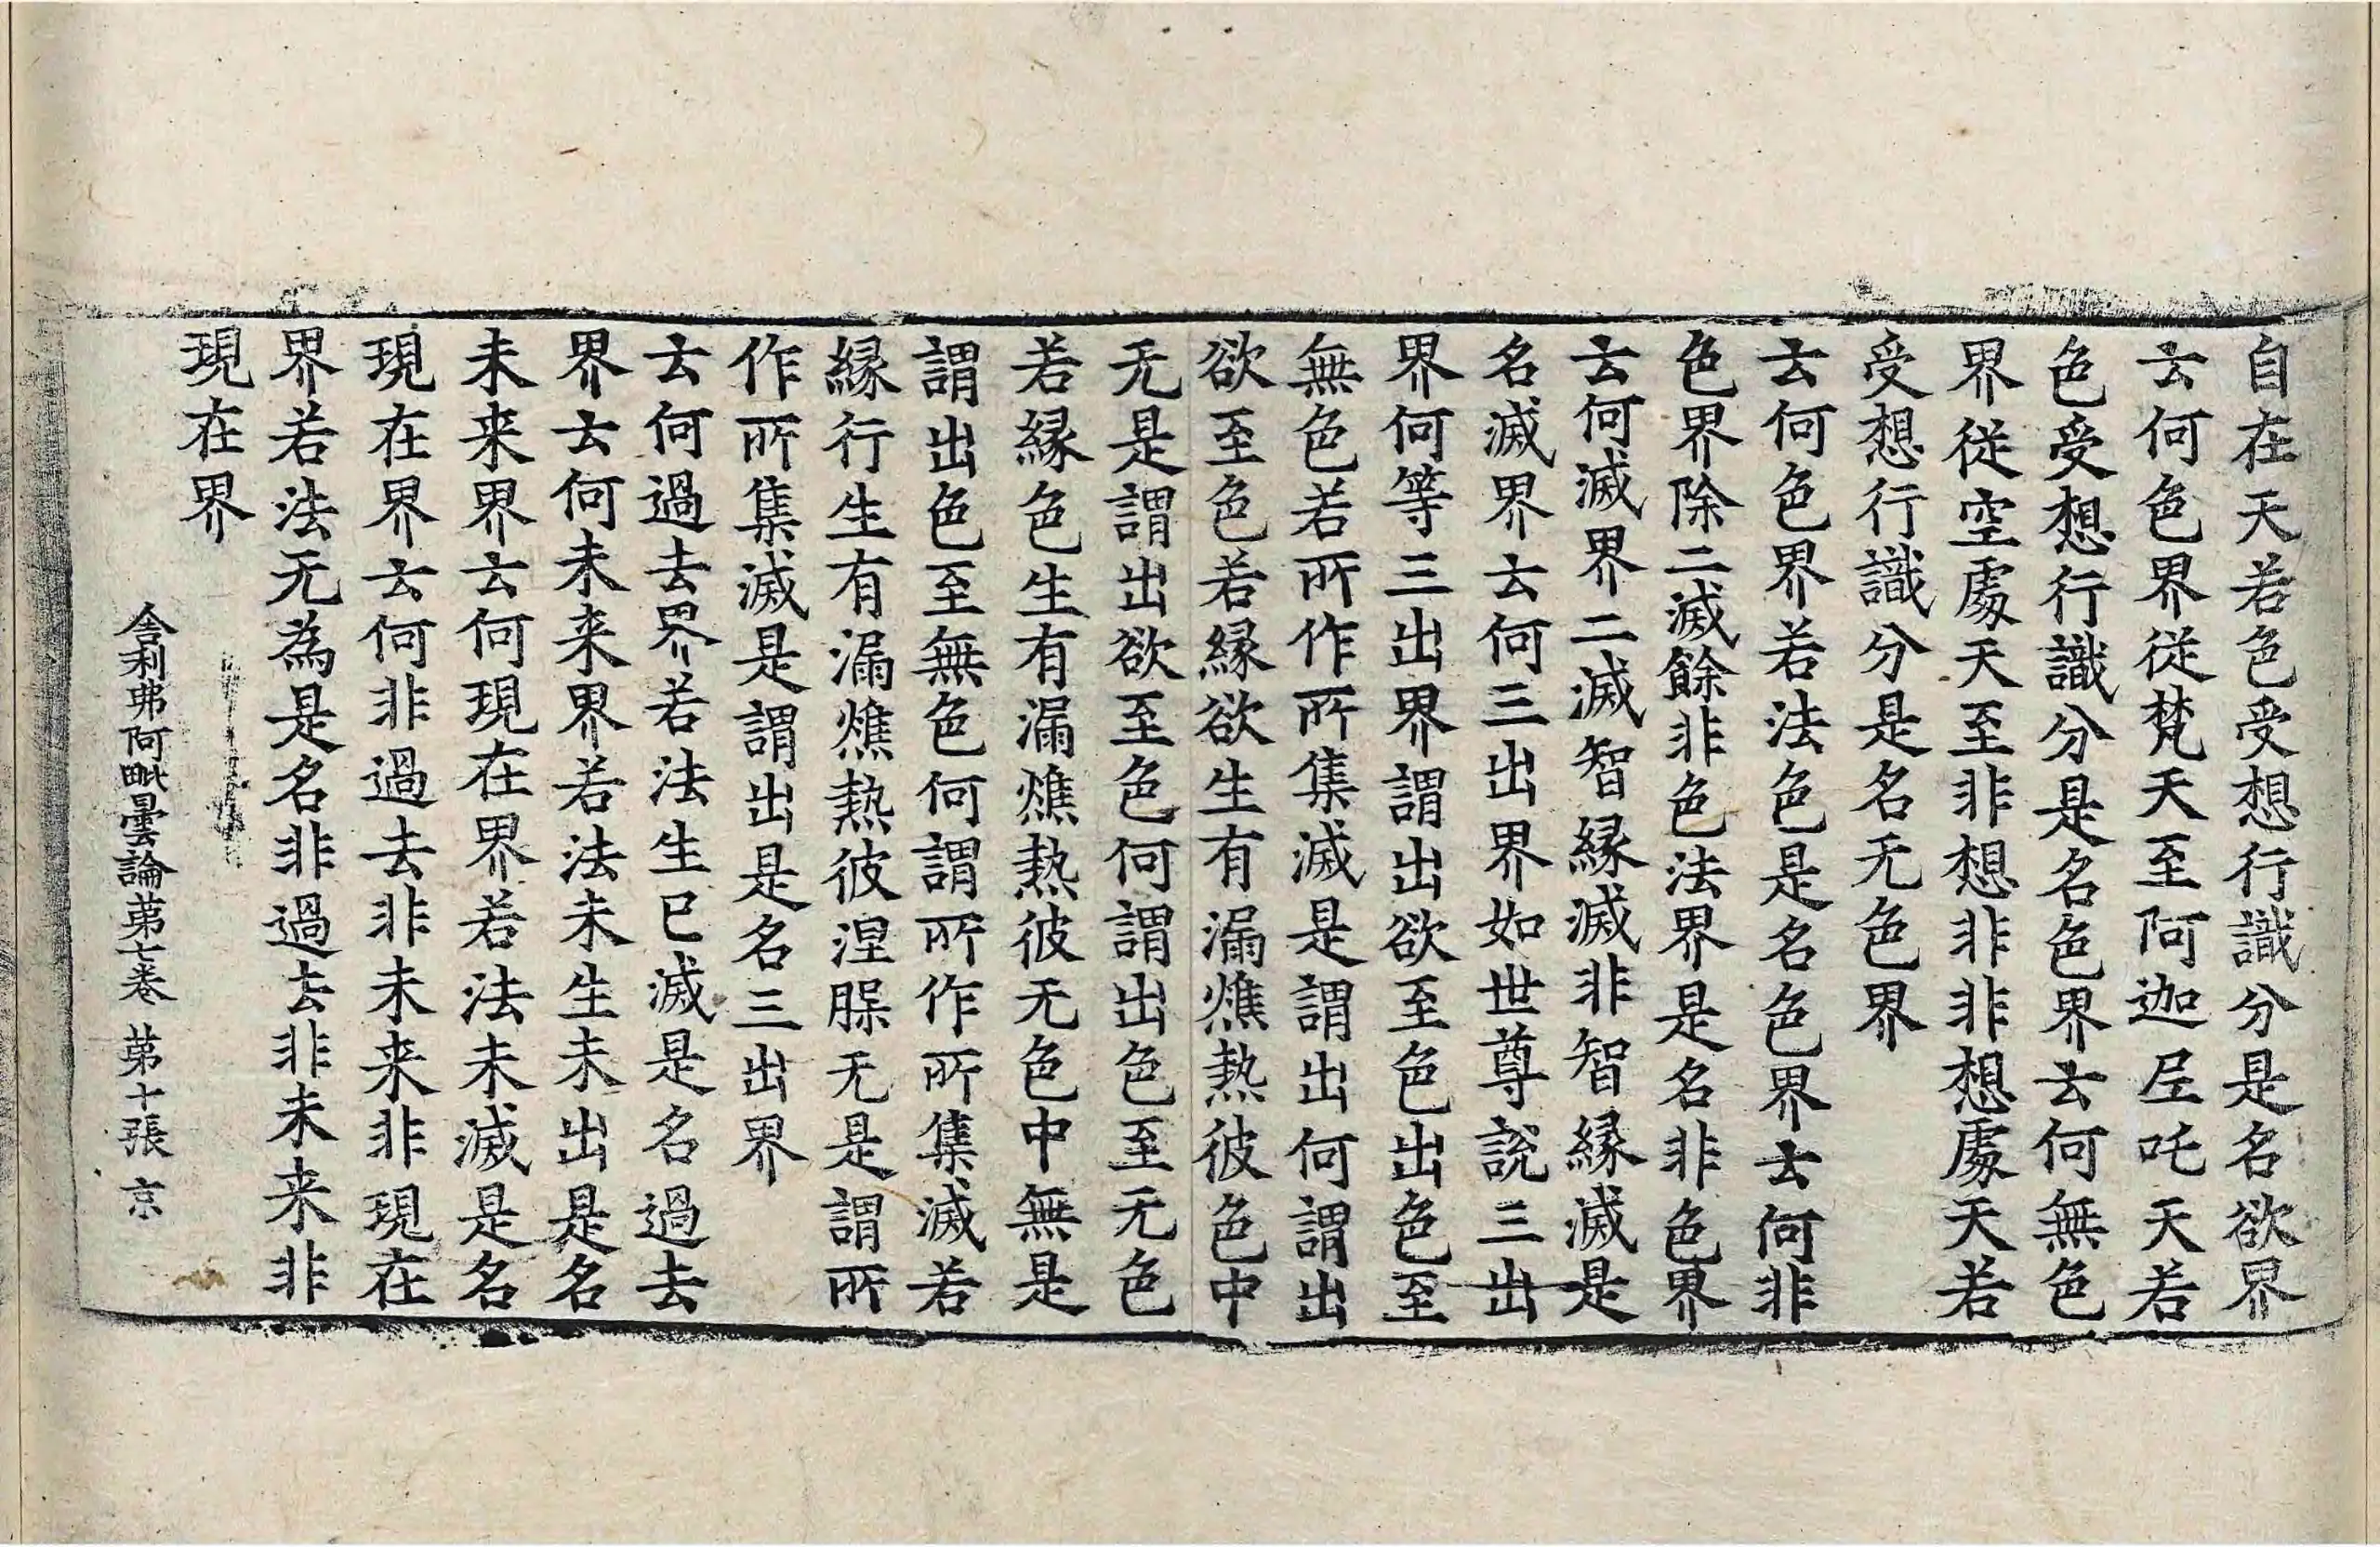 自在天若色受想行識分是名欲界
云何色界從梵天至阿迦尼吒天若
色受想行識分是名色界云何無色
界從空處天至非想非非想處天若
受想行識分是名无色界
云何色界若法色是名色界云何非
色界除二滅餘非色法界是名非色界
云何滅界二滅智縁滅非智縁滅是
名滅界云何三出界如世尊說三出
界何等三出界謂出欲至色出色至
無色若所作所集滅是謂出何謂出
欲至色若縁欲生有漏燋熱彼色中
无是謂出欲至色何謂出色至无色
若縁色生有漏燋熱彼无色中無是
謂出色至無色何謂所作所集滅若
縁行生有漏燋熱彼涅槃无是謂所
作所集滅是謂出是名三出界
云何過去界若法生已滅是名過去
界云何未来界若法未生未出是名
未来界云何現在界若法未滅是名
現在界云何非過去非未来非現在
界若法无為是名非過去非未来非
現在界
舎利弗阿毗曇論第七卷 第十張 京